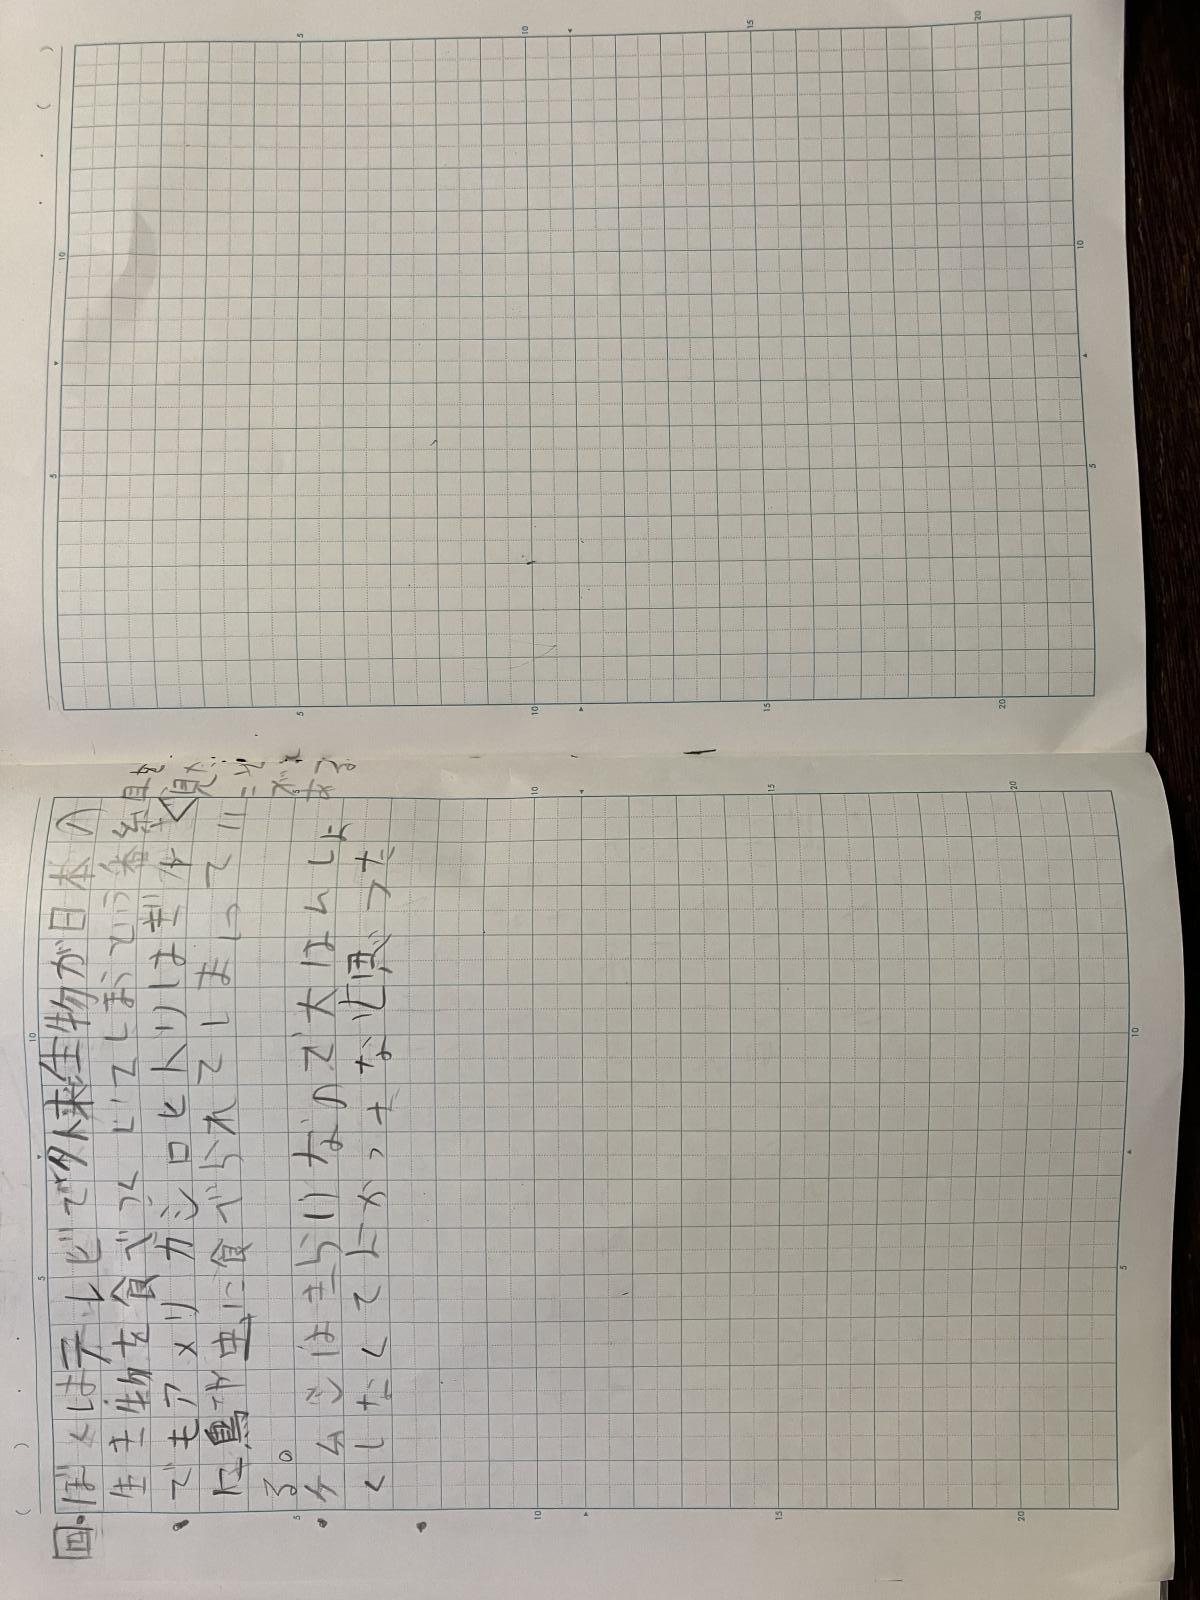 回
ぼくはテレビで外来生物が日本の
生き物を食べつくしてしまうという番組を
見た
こと
が
ある
でもアメリカシロヒトリはぎゃく
に鳥や虫に食べられてしまってい
る。
ケムシはきらいなので大はんしょ
くしなくてよかったなと思った